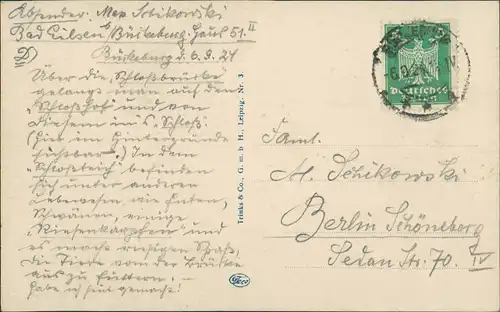 Absender: Max Sobikowski
Bad Eilsen b/Bückeburg. Haus 51. II
D) Bückeburg d. 6.9.24
Über die "Schloßbrücke"
gelangt man auf den
"Schloßhof" und von
diesem ins "Schloß".
(hier im Hintergrunde
sichtbar.) In dem
"Schloßteich" befinden
sich unter anderen
Lebewesen wie Enten,
Schwänen, einige
"Riesenkarpfen" und
es macht riesigen Spaß,
die Tiere von der Brücke
aus zu füttern. –
habe ich heut gemacht!
Trinks & Co., G. m. b. H., Leipzig, Nr. 3.
Deutsches
Famt.
M. Schikowski
Berlin Schöneberg
Sedan Str. 70. IV